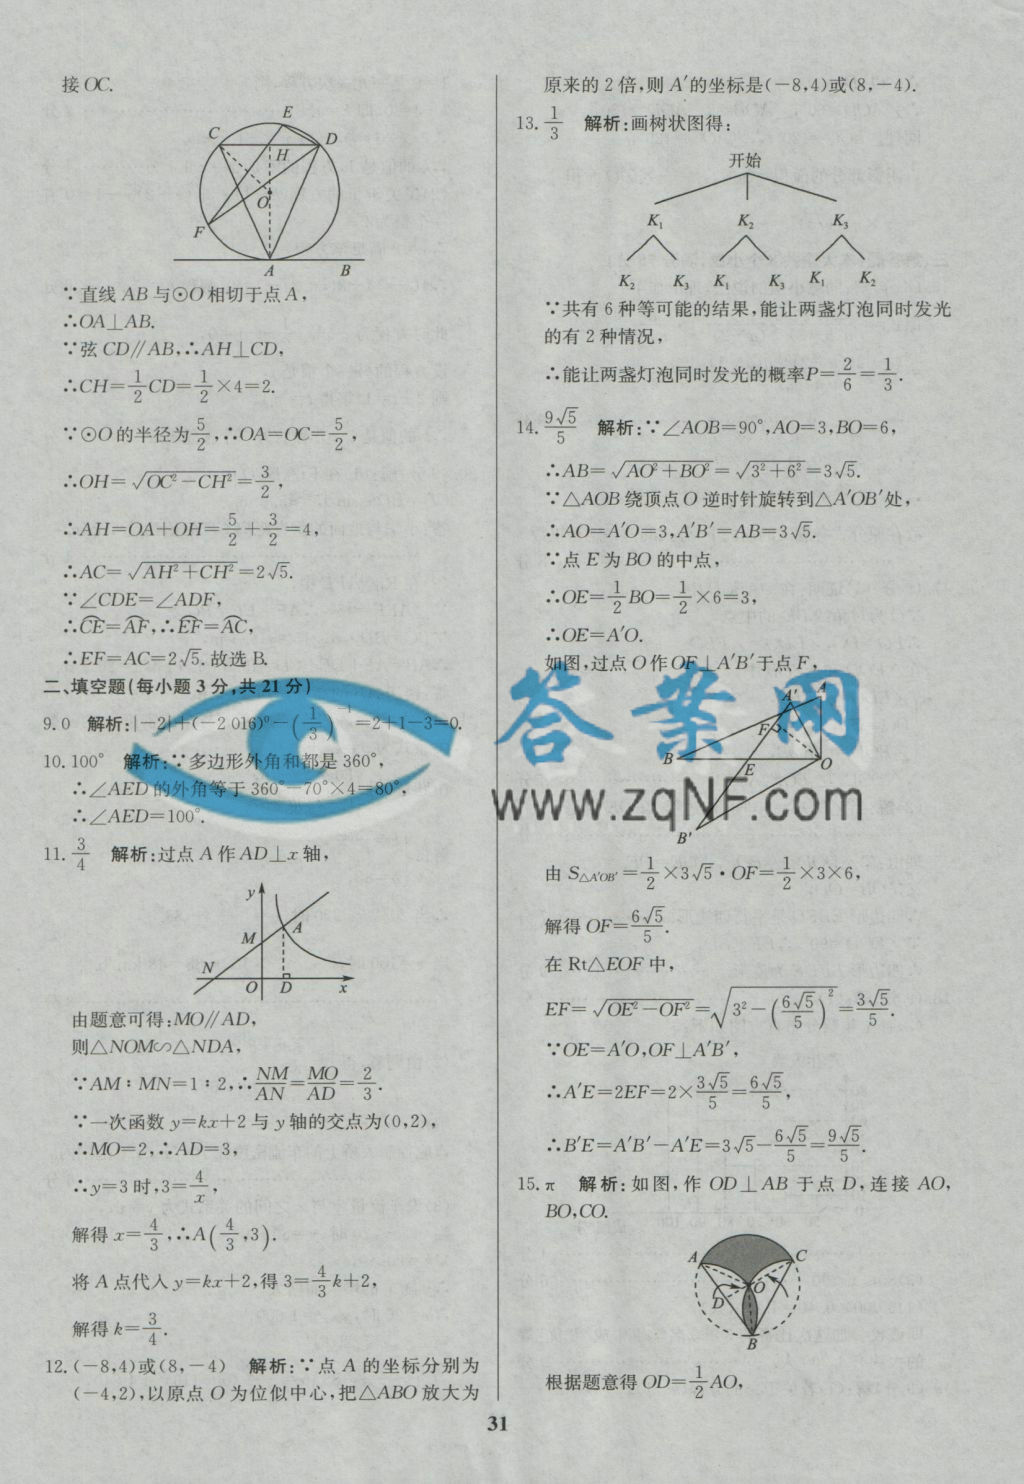 接OC.
E
C
D
H
O
F
A
B
∵直线 AB 与⊙O 相切于点 A,
∴OA⊥AB.
∵弦 CD∥AB,∴AH⊥CD,
∴CH=1/2CD=1/2×4=2.
∵⊙O 的半径为5/2,∴OA=OC=5/2,
∴OH=√(OC²-CH²)=3/2,
∴AH=OA+OH=5/2+3/2=4,
∴AC=√(AH²+CH²)=2√5.
∵∠CDE=∠ADF,
∴⌒CE=⌒AF,∴⌒EF=⌒AC,
∴EF=AC=2√5.故选 B.
二、填空题(每小题 3 分,共 21 分)
9.0 解析:|-2|+(-2 016)⁰-(1/3)⁻¹=2+1-3=0.
10.100° 解析:∵多边形外角和都是 360°,
∴∠AED 的外角等于 360°-70°×4=80°,
∴∠AED=100°.
11.3/4 解析:过点 A 作 AD⊥x 轴,
y
M
A
N
O
D
x
由题意可得:MO∥AD,
则△NOM∽△NDA,
∵AM∶MN=1∶2,∴NM/AN=MO/AD=2/3.
∵一次函数 y=kx+2 与 y 轴的交点为(0,2),
∴MO=2,∴AD=3,
∴y=3 时,3=4/x,
解得 x=4/3,∴A(4/3,3).
将 A 点代入 y=kx+2,得 3=4/3k+2,
解得 k=3/4.
12.(-8,4)或(8,-4) 解析:∵点 A 的坐标分别为
(-4,2),以原点 O 为位似中心,把△ABO 放大为
原来的 2 倍,则 A′的坐标是(-8,4)或(8,-4).
13.1/3 解析:画树状图得:
开始
K₁ K₂ K₃
K₂ K₃ K₁ K₃ K₁ K₂
∵共有 6 种等可能的结果,能让两盏灯泡同时发光
的有 2 种情况,
∴能让两盏灯泡同时发光的概率P=2/6=1/3.
14.9√5/5 解析:∵∠AOB=90°,AO=3,BO=6,
∴AB=√(AO²+BO²)=√(3²+6²)=3√5.
∵△AOB 绕顶点 O 逆时针旋转到△A′OB′处,
∴AO=A′O=3,A′B′=AB=3√5.
∵点 E 为 BO 的中点,
∴OE=1/2BO=1/2×6=3,
∴OE=A′O.
如图,过点 O 作 OF⊥A′B′于点 F,
答案网
www.zqNF.com
A′
A
F
B
E
O
B′
由 S△A′OB′=1/2×3√5·OF=1/2×3×6,
解得 OF=6√5/5.
在 Rt△EOF 中,
EF=√(OE²-OF²)=√(3²-(6√5/5)²)=3√5/5.
∵OE=A′O,OF⊥A′B′,
∴A′E=2EF=2×3√5/5=6√5/5,
∴B′E=A′B′-A′E=3√5-6√5/5=9√5/5.
15.π 解析:如图,作 OD⊥AB 于点 D,连接 AO,
BO,CO.
A
C
O
D
B
根据题意得 OD=1/2AO,
31